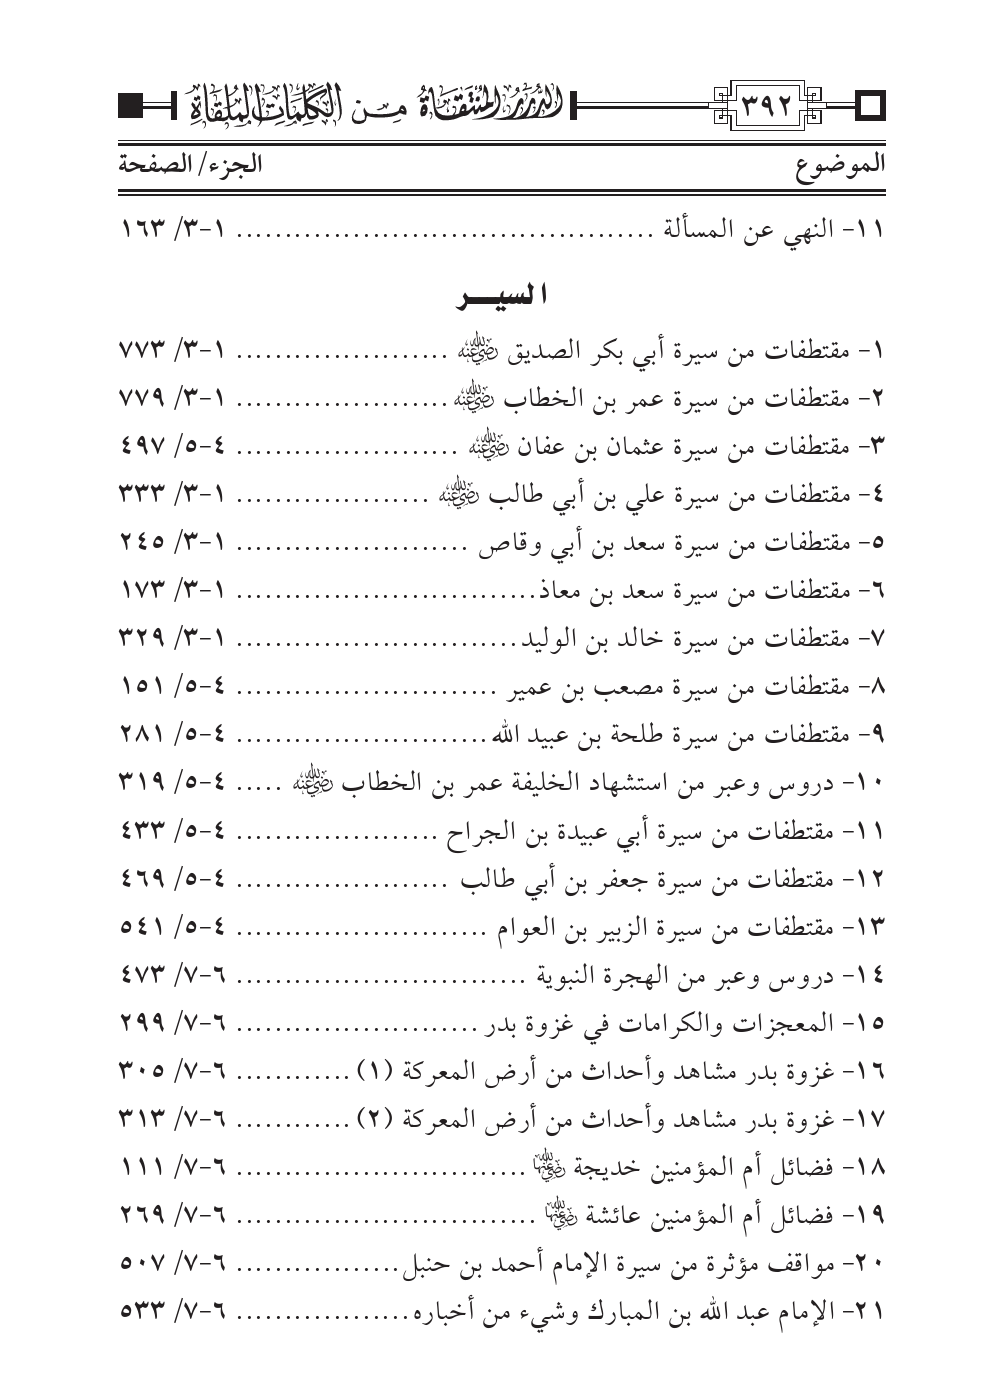 ٣٩٢ الدرر المنتقاة من الكلمات الملقاة
الموضوع الجزء/ الصفحة
١١- النهي عن المسألة ........................................... ١-٣/ ١٦٣
السير
١- مقتطفات من سيرة أبي بكر الصديق رضي الله عنه ...................... ١-٣/ ٧٧٣
٢- مقتطفات من سيرة عمر بن الخطاب رضي الله عنه ...................... ١-٣/ ٧٧٩
٣- مقتطفات من سيرة عثمان بن عفان رضي الله عنه ....................... ٤-٥/ ٤٩٧
٤- مقتطفات من سيرة علي بن أبي طالب رضي الله عنه .................... ١-٣/ ٣٣٣
٥- مقتطفات من سيرة سعد بن أبي وقاص ........................ ١-٣/ ٢٤٥
٦- مقتطفات من سيرة سعد بن معاذ............................... ١-٣/ ١٧٣
٧- مقتطفات من سيرة خالد بن الوليد............................. ١-٣/ ٣٢٩
٨- مقتطفات من سيرة مصعب بن عمير ........................... ٤-٥/ ١٥١
٩- مقتطفات من سيرة طلحة بن عبيد الله.......................... ٤-٥/ ٢٨١
١٠- دروس وعبر من استشهاد الخليفة عمر بن الخطاب رضي الله عنه ..... ٤-٥/ ٣١٩
١١- مقتطفات من سيرة أبي عبيدة بن الجراح ..................... ٤-٥/ ٤٣٣
١٢- مقتطفات من سيرة جعفر بن أبي طالب ...................... ٤-٥/ ٤٦٩
١٣- مقتطفات من سيرة الزبير بن العوام .......................... ٤-٥/ ٥٤١
١٤- دروس وعبر من الهجرة النبوية .............................. ٦-٧/ ٤٧٣
١٥- المعجزات والكرامات في غزوة بدر ......................... ٦-٧/ ٢٩٩
١٦- غزوة بدر مشاهد وأحداث من أرض المعركة (١) ............ ٦-٧/ ٣٠٥
١٧- غزوة بدر مشاهد وأحداث من أرض المعركة (٢) ............ ٦-٧/ ٣١٣
١٨- فضائل أم المؤمنين خديجة رضي الله عنها .............................. ٦-٧/ ١١١
١٩- فضائل أم المؤمنين عائشة رضي الله عنها ............................... ٦-٧/ ٢٦٩
٢٠- مواقف مؤثرة من سيرة الإمام أحمد بن حنبل................. ٦-٧/ ٥٠٧
٢١- الإمام عبد الله بن المبارك وشيء من أخباره.................. ٦-٧/ ٥٣٣